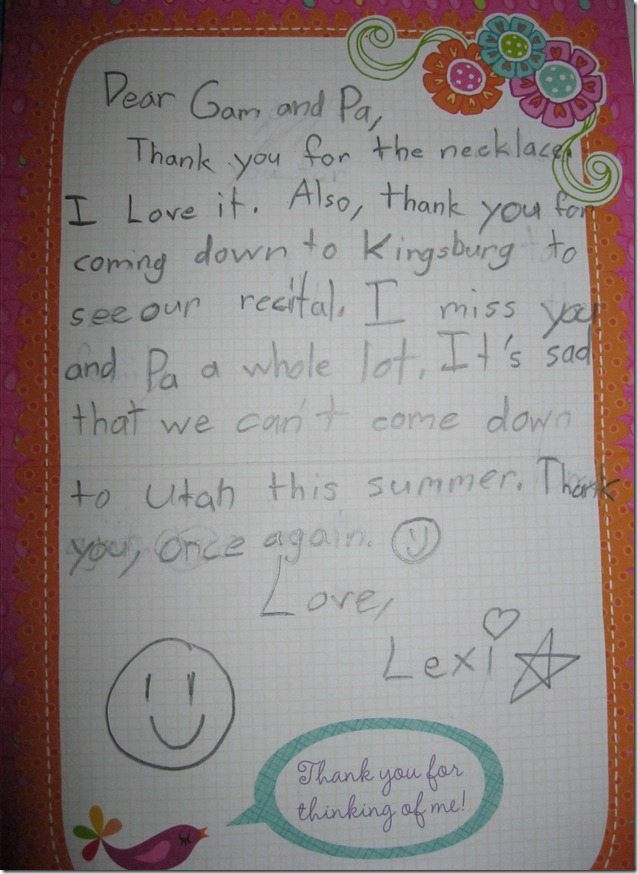 Dear Gam and Pa,
Thank you for the necklace.
I Love it. Also, thank you for
coming down to Kingsburg to
see our recital. I miss you
and Pa a whole lot. It's sad
that we can't come down
to Utah this summer. Thank
you, once again.
Love,
Lexi
Thank you for
thinking of me!